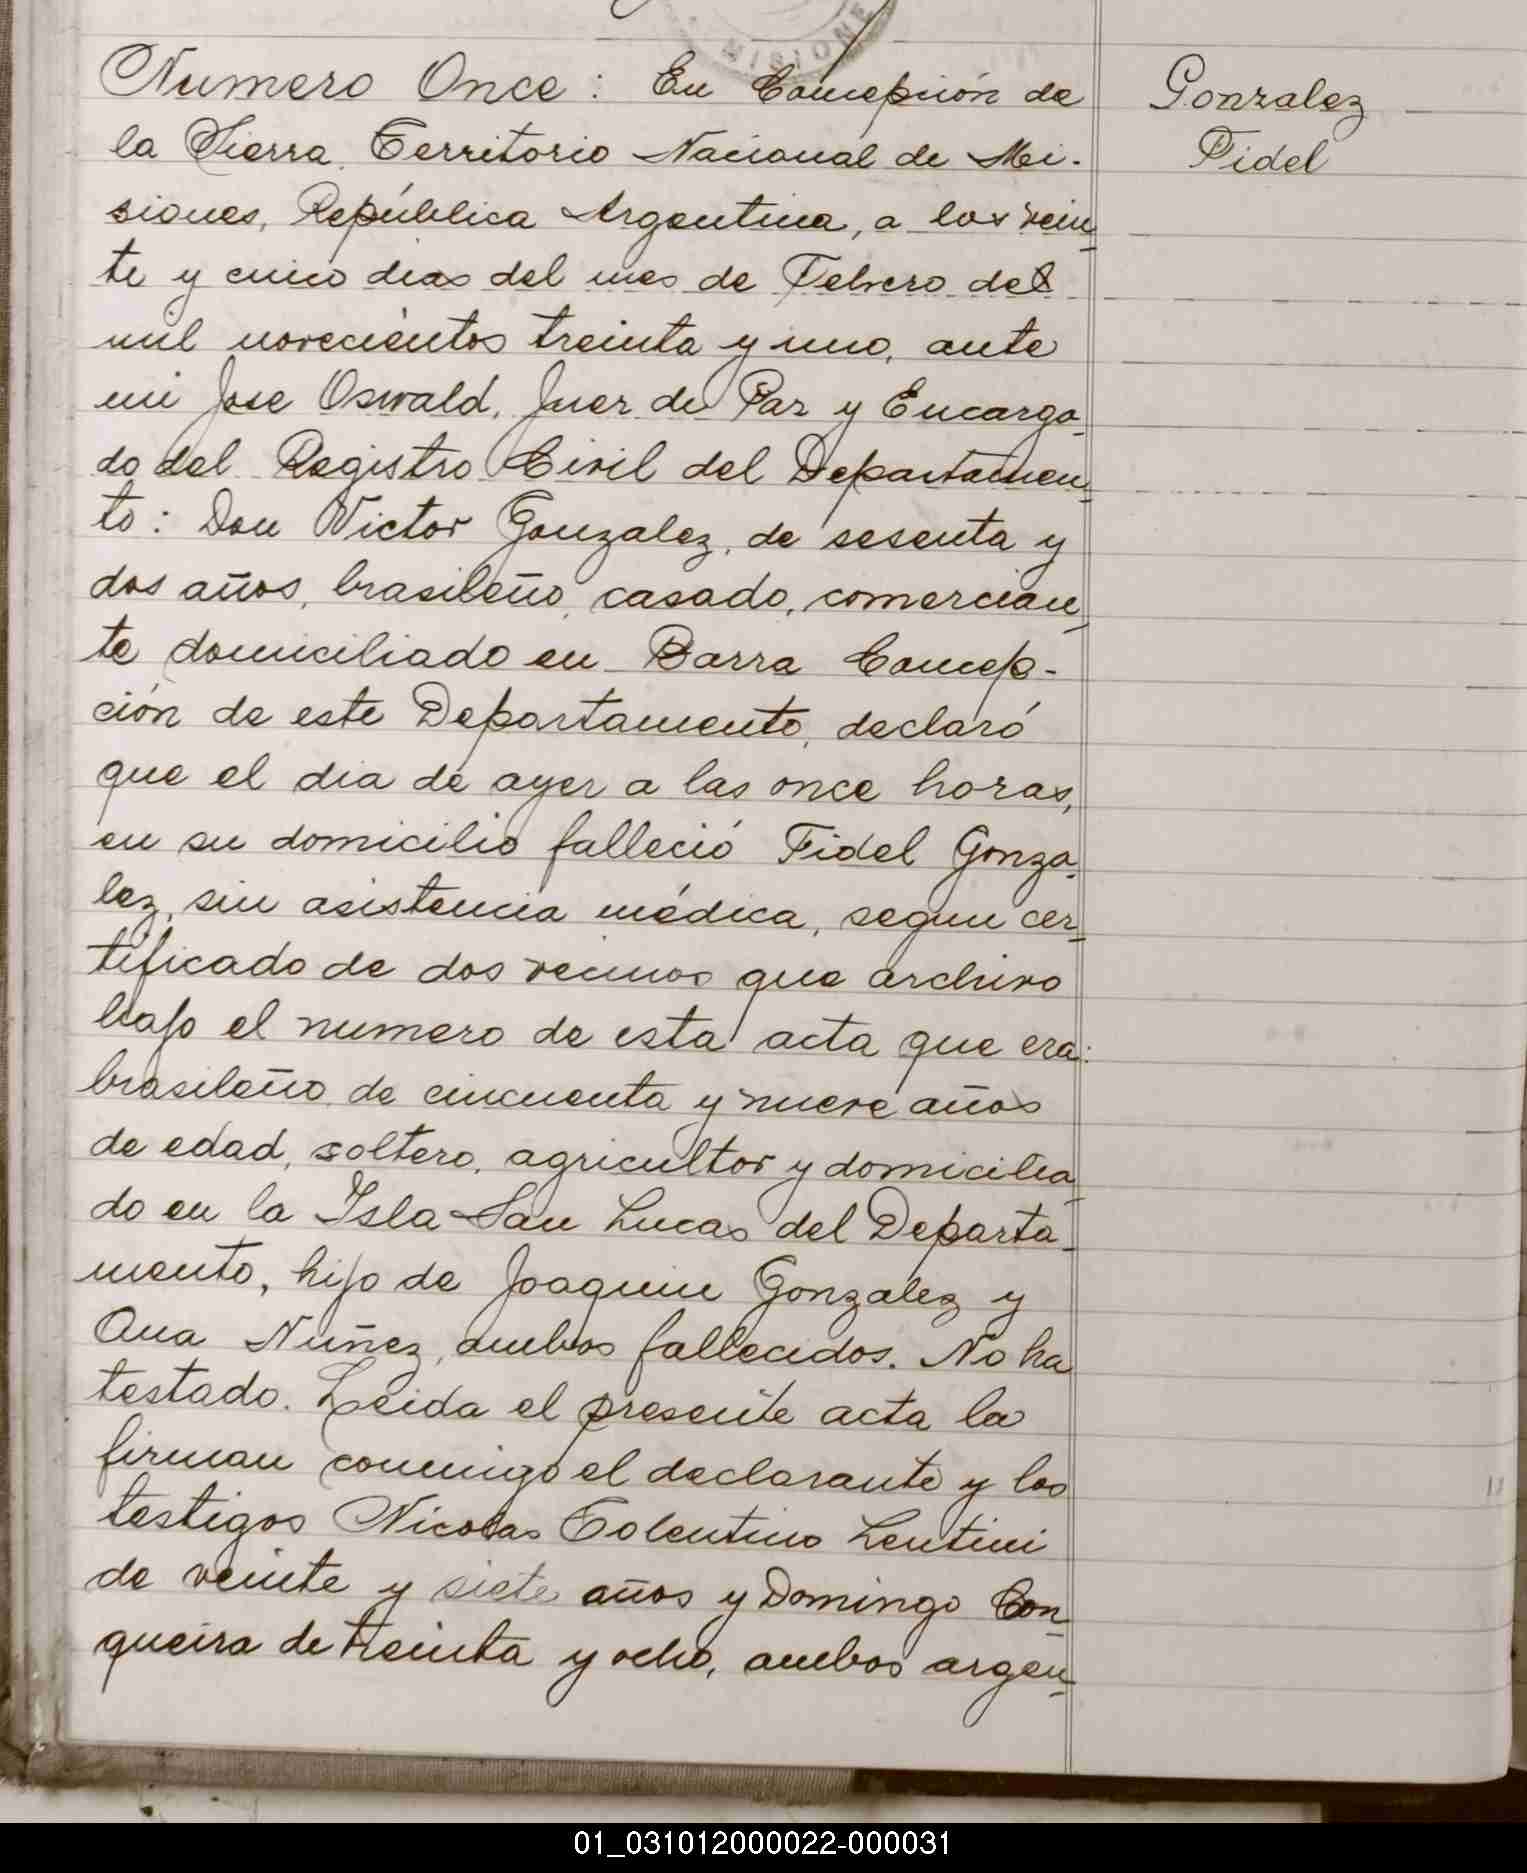 MISIONE
Numero Once: En Concepción de
la Sierra, Territorio Nacional de Mi-
siones, República Argentina, a los vein_
te y cinco dias del mes de Febrero del
mil novecientos treinta y uno, ante
mi Jose Oswald, Juez de Paz y Encarga_
do del Registro Civil del Departamen_
to: Don Victor Gonzalez, de sesenta y
dos años, brasileño, casado, comercian_
te domiciliado en Barra Concep-
ción de este Departamento, declaró
que el dia de ayer a las once horas,
en su domicilio falleció Fidel Gonza_
lez, sin asistencia médica, segun cer_
tificado de dos vecinos que archivo
bajo el numero de esta acta que era:
brasileño, de cincuenta y nueve años
de edad, soltero, agricultor y domicilia_
do en la Isla San Lucas del Departa_
mento, hijo de Joaquin Gonzalez y
Ana Nuñez, ambos fallecidos. No ha
testado. Leida el presente acta la
firman conmigo el declarante y los
testigos Nicolas Tolentino Lentini
de veinte y siete años y Domingo Con_
queira de treinta y ocho, ambos argen_
Gonzalez
Fidel
01_031012000022-000031